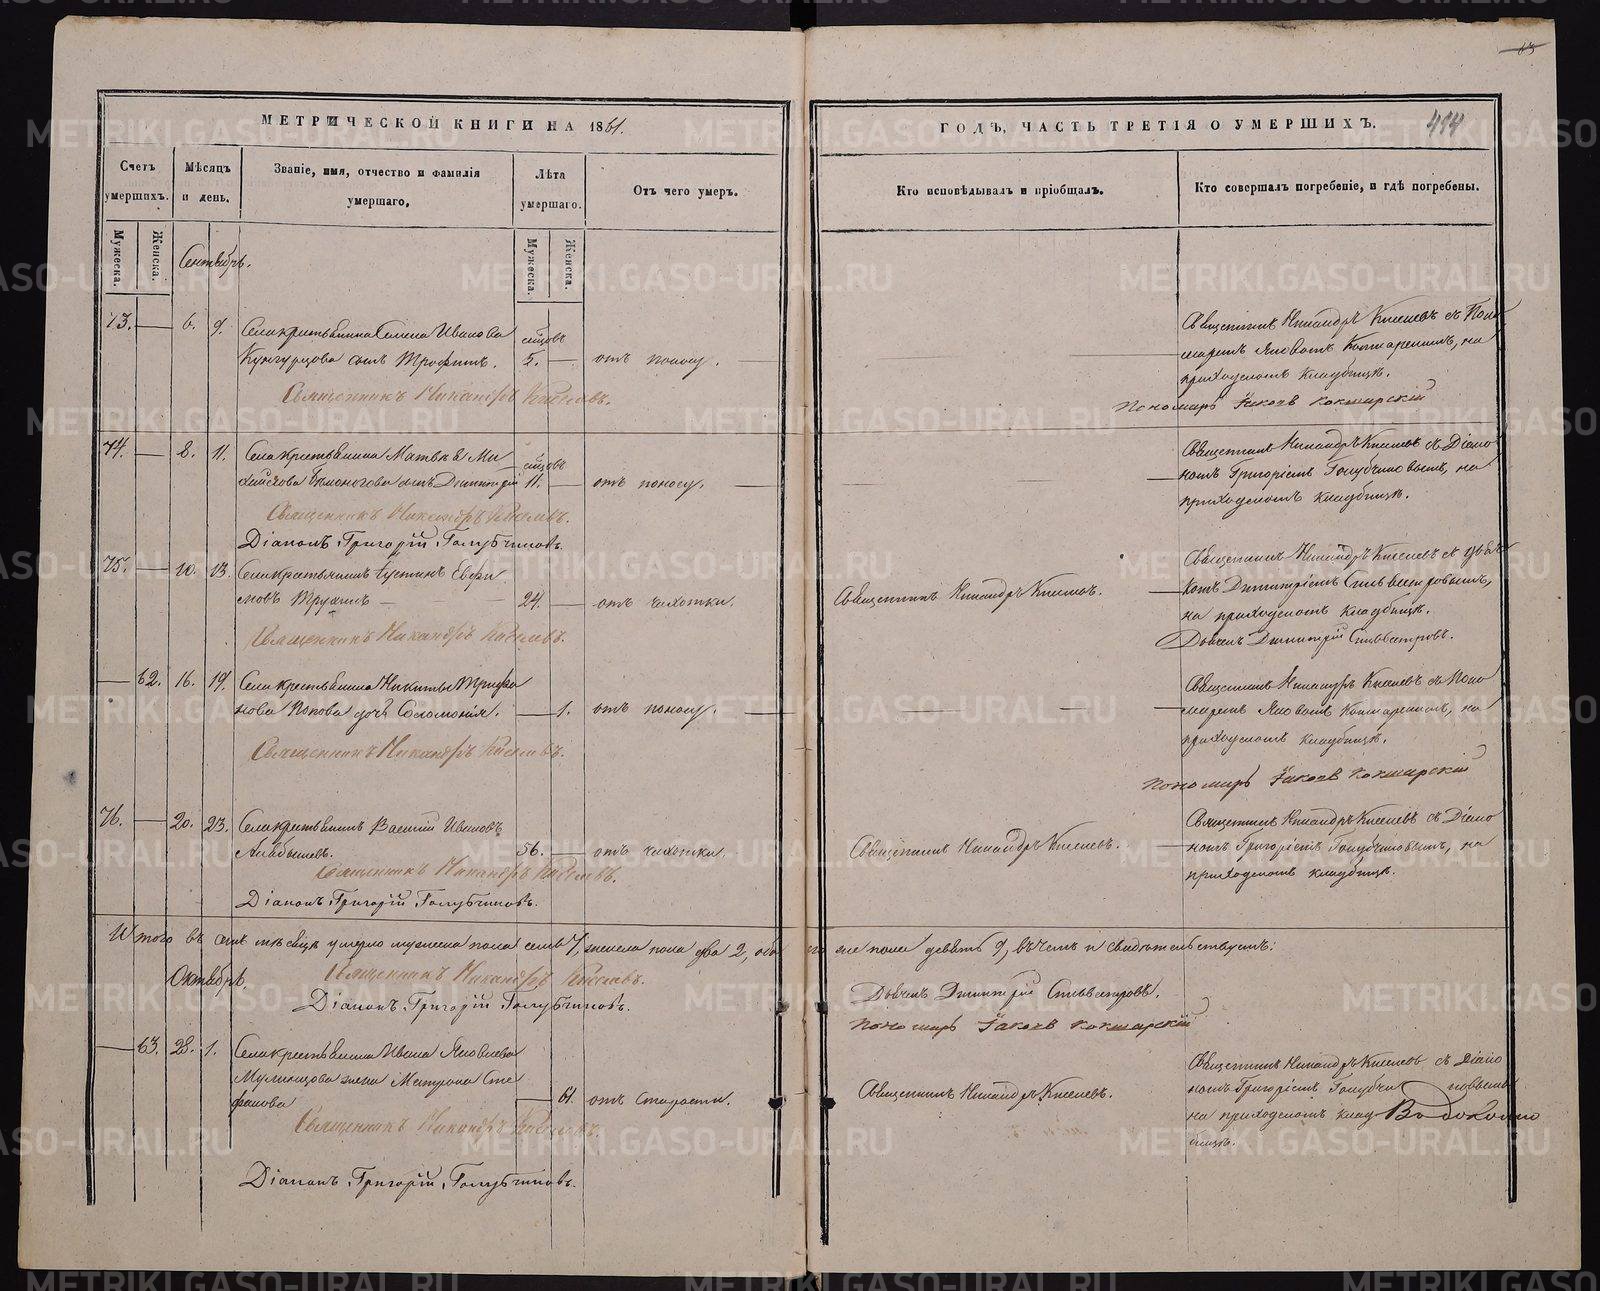 63
МЕТРИЧЕСКОЙ КНИГИ НА 1861.
ГОДЪ, ЧАСТЬ ТРЕТІЯ О УМЕРШИХЪ.
414
Счетъ умершихъ.
Мѣсяцъ и день.
Званіе, имя, отчество и фамилія умершаго.
Лѣта умершаго.
Отъ чего умеръ.
Кто исповѣдывалъ и пріобщалъ.
Кто совершалъ погребеніе, и гдѣ погребены.
Мужеска.
Женска.
Мужеска.
Женска.
Сентябрь.
73. — 6. 9. Села крестьянина Семена Иванова
сынъ Трофимъ. 5. — отъ поносу.
Священникъ Никандръ Киселевъ съ Поно
маремъ Яковомъ Кокшарскимъ, на
приходскомъ кладбищѣ.
Священникъ Никандръ Киселевъ.
Пономарь Іаковъ Кокшарскій
74. — 8. 11. Села крестьянина Матвѣя Ми
хайлова сынъ Димитрій 11. — отъ поносу.
Священникъ Никандръ Киселевъ съ Діако
номъ Григоріемъ Голубчиковымъ, на
приходскомъ кладбищѣ.
Священникъ Никандръ Киселевъ.
Діаконъ Григорій Голубчиковъ.
75. — 10. 13. Села крестьянинъ Іустинъ Евфи
мовъ 24. — отъ чахотки.
Священникъ Никандръ Киселевъ.
Священникъ Никандръ Киселевъ съ Дьяч
комъ Димитріемъ Сильвестровымъ,
на приходскомъ кладбищѣ.
Священникъ Никандръ Киселевъ.
Дьячекъ Димитрій Сильвестровъ.
— 62. 16. 19. Села крестьянина Никиты Трифо
нова Попова дочь Соломонія. — 1. отъ поносу.
Священникъ Никандръ Киселевъ съ Поно
маремъ Яковомъ Кокшарскимъ, на
приходскомъ кладбищѣ.
Священникъ Никандръ Киселевъ.
Пономарь Іаковъ Кокшарскій
76. — 20. 23. Села крестьянинъ Василій Ивановъ
56. — отъ чахотки.
Священникъ Никандръ Киселевъ.
Священникъ Никандръ Киселевъ съ Діако
номъ Григоріемъ Голубчиковымъ, на
приходскомъ кладбищѣ.
Священникъ Никандръ Киселевъ.
Діаконъ Григорій Голубчиковъ.
Итого въ семъ мѣсяцѣ умерло мужеска пола семь 7, женска пола два 2, обоего же пола девять 9, въ чемъ и свидѣтельствуемъ:
Священникъ Никандръ Киселевъ.
Діаконъ Григорій Голубчиковъ.
Дьячекъ Димитрій Сильвестровъ.
Пономарь Іаковъ Кокшарскій
Октябрь.
— 63. 28. 1. Села крестьянина Ивана Яковлева
жена Матрона Сте
фанова — 61. отъ старости.
Священникъ Никандръ Киселевъ.
Священникъ Никандръ Киселевъ съ Діако
номъ Григоріемъ Голубчиковымъ
на приходскомъ клад
бищѣ.
Священникъ Никандръ Киселевъ.
Діаконъ Григорій Голубчиковъ.
METRIKI.GASO-URAL.RU